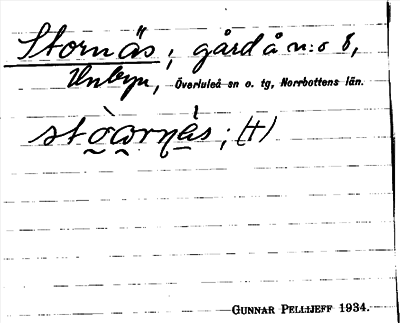 Stornäs; gård å n:o 8,
Unbyn, Överluleå sn o. tg, Norrbottens län.
GUNNAR PELLIJEFF 1934.